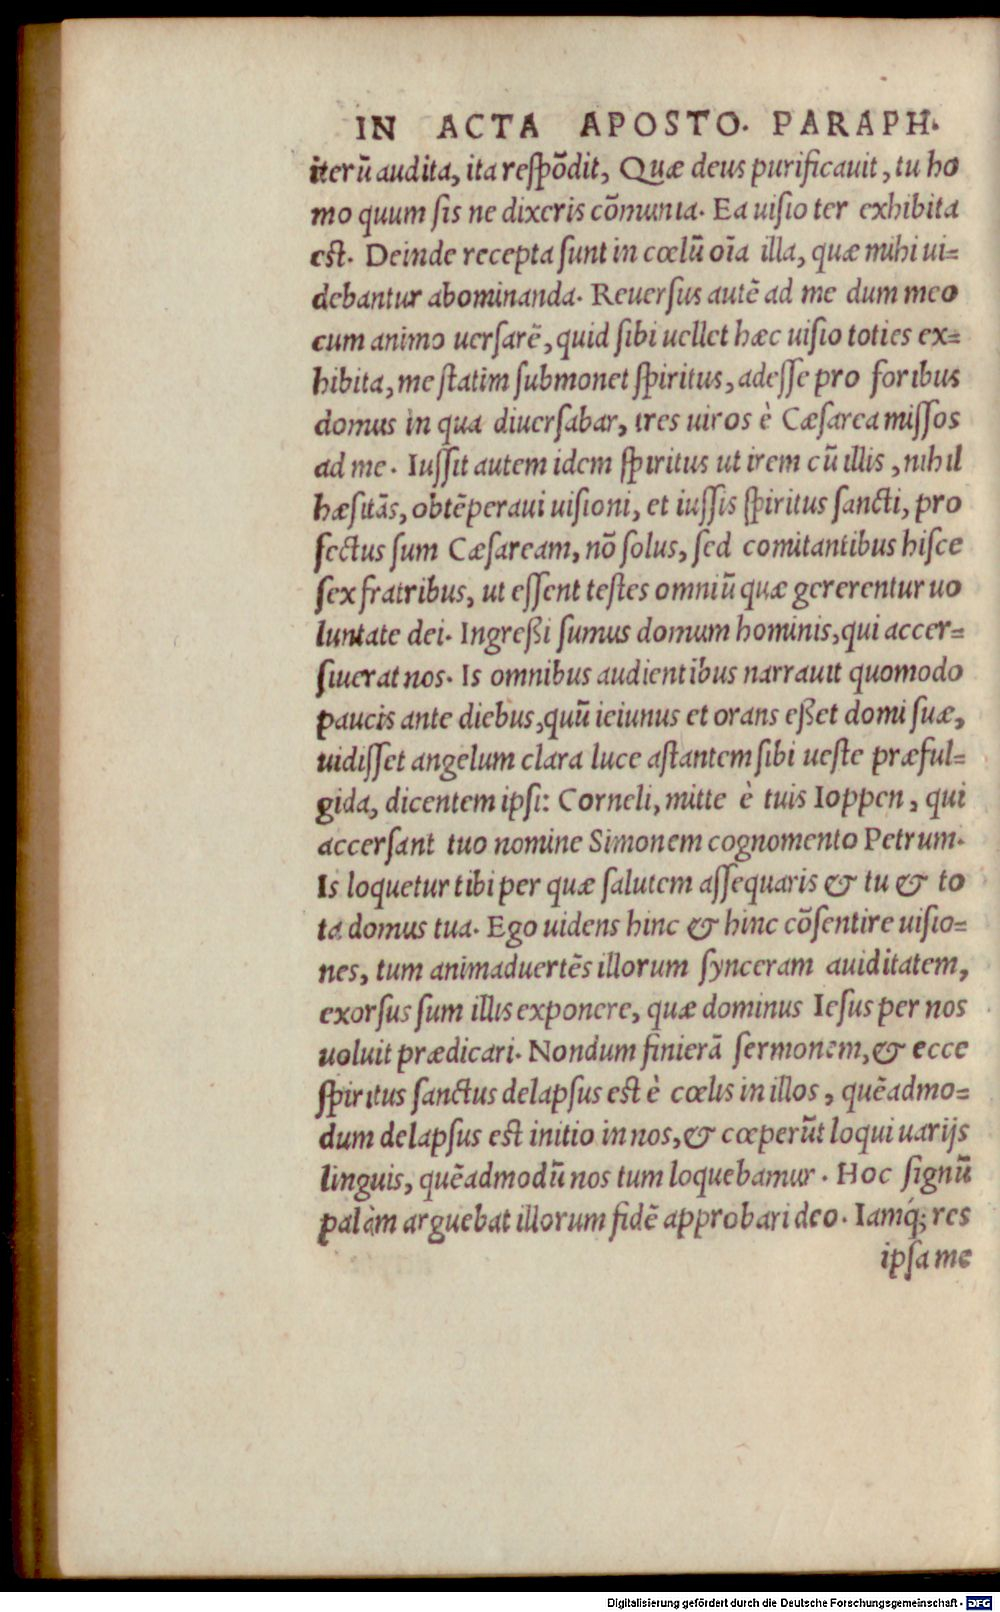 IN ACTA APOSTO. PARAPH.
iterũ audita, ita reſpõdit, Quæ deus purificauit, tu ho
mo quum ſis ne dixeris cõmunia. Ea uiſio ter exhibita
est. Deinde recepta ſunt in cœlũ oĩa illa, quæ mihi ui=
debantur abominanda. Reuerſus autẽ ad me dum meo
cum animo uerſarẽ, quid ſibi uellet hæc uiſio toties ex=
hibita, me ſtatim ſubmonet ſpiritus, adeſſe pro foribus
domus in qua diuerſabar, tres uiros è Cæſarea miſſos
ad me. Iuſſit autem idem ſpiritus ut irem cũ illis, nihil
hæſitãs, obtẽperaui uiſioni, et iuſſis ſpiritus ſancti, pro
fectus ſum Cæſaream, nõ ſolus, ſed comitantibus hiſce
ſex fratribus, ut eſſent teſtes omniũ quæ gererentur uo
luntate dei. Ingreßi ſumus domum hominis, qui accer=
ſiuerat nos. Is omnibus audientibus narrauit quomodo
paucis ante diebus, quũ ieiunus et orans eßet domi ſuæ,
uidiſſet angelum clara luce aſtantem ſibi ueſte præful=
gida, dicentem ipſi: Corneli, mitte è tuis Ioppen, qui
accerſant tuo nomine Simonem cognomento Petrum.
Is loquetur tibi per quæ ſalutem aſſequaris & tu & to
ta domus tua. Ego uidens hinc & hinc cõſentire uiſio=
nes, tum animaduertẽs illorum ſynceram auiditatem,
exorſus ſum illis exponere, quæ dominus Ieſus per nos
uoluit prædicari. Nondum finierã ſermonem, & ecce
ſpiritus ſanctus delapſus est è cœlis in illos, quẽadmo=
dum delapſus est initio in nos, & cœperũt loqui uarijs
linguis, quẽadmodũ nos tum loquebamur. Hoc ſignũ
palàm arguebat illorum fidẽ approbari deo. Iamq́; res
ipſa me
Digitalisierung gefördert durch die Deutsche Forschungsgemeinschaft - DFG